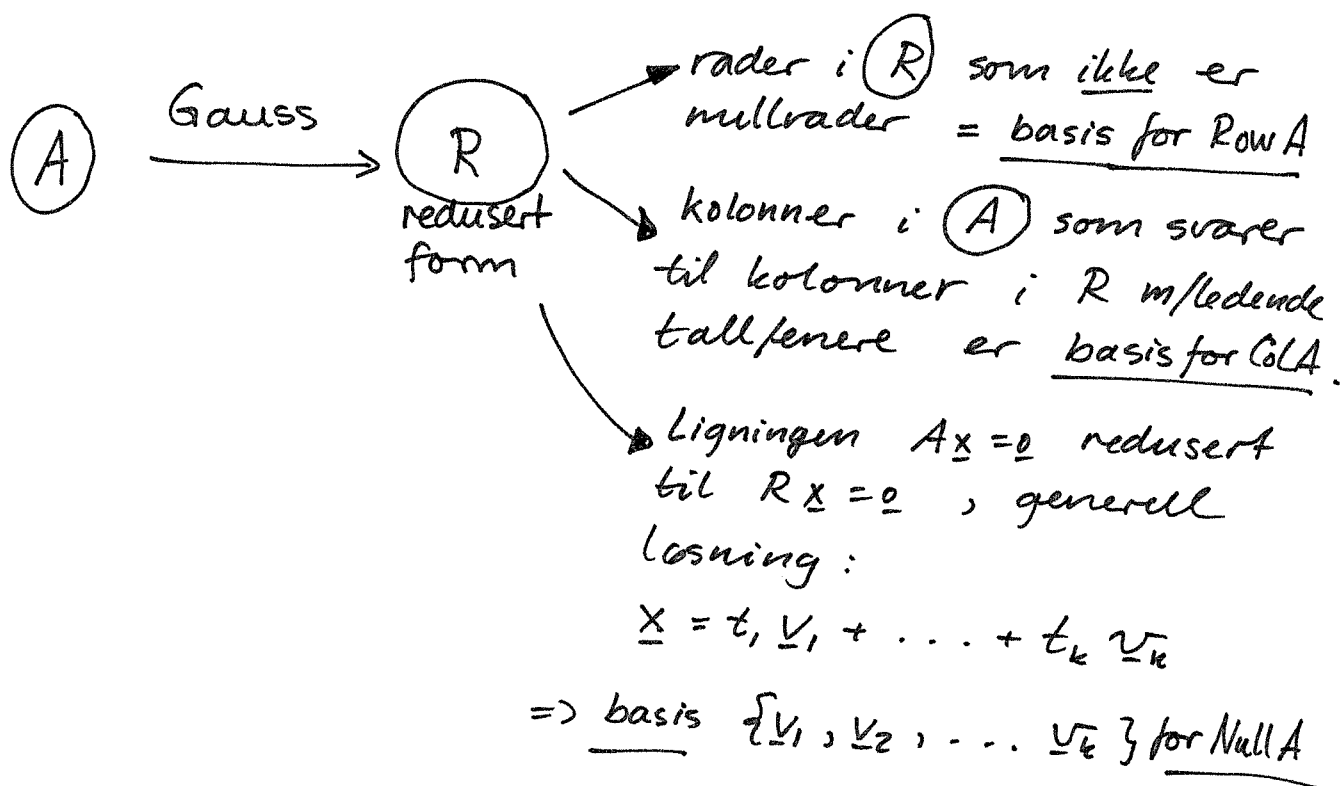 A
Gauss
R
redusert
form
rader i R som ikke er
nullrader = basis for Row A
kolonner i A som svarer
til kolonner i R m/ledende
tall/enere er basis for Col A.
Ligningen Ax = 0 redusert
til Rx = 0 , generell
løsning :
x = t₁ v₁ + . . . + tₖ vₖ
=> basis {v₁ , v₂ , . . . vₖ } for Null A